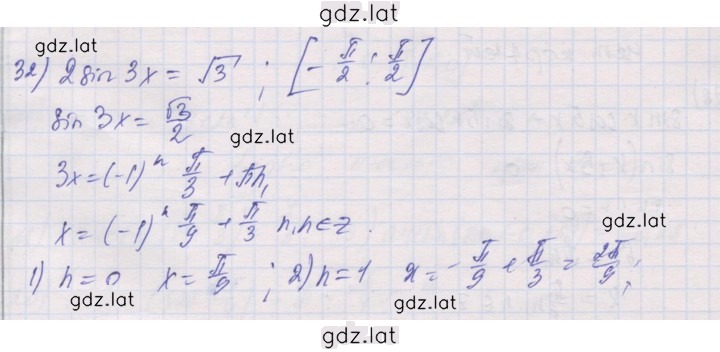 gdz.lat
gdz.lat
32) 2 sin 3x = √3 ; [-π/2 ; π/2]
sin 3x = √3/2
gdz.lat
3x = (-1)^n π/3 + πn,
x = (-1)^n π/9 + π/3 n, n ∈ z.
gdz.lat
1) n = 0 x = π/9 ; 2) n = 1 x = -π/9 + π/3 = 2π/9 ;
gdz.lat
gdz.lat